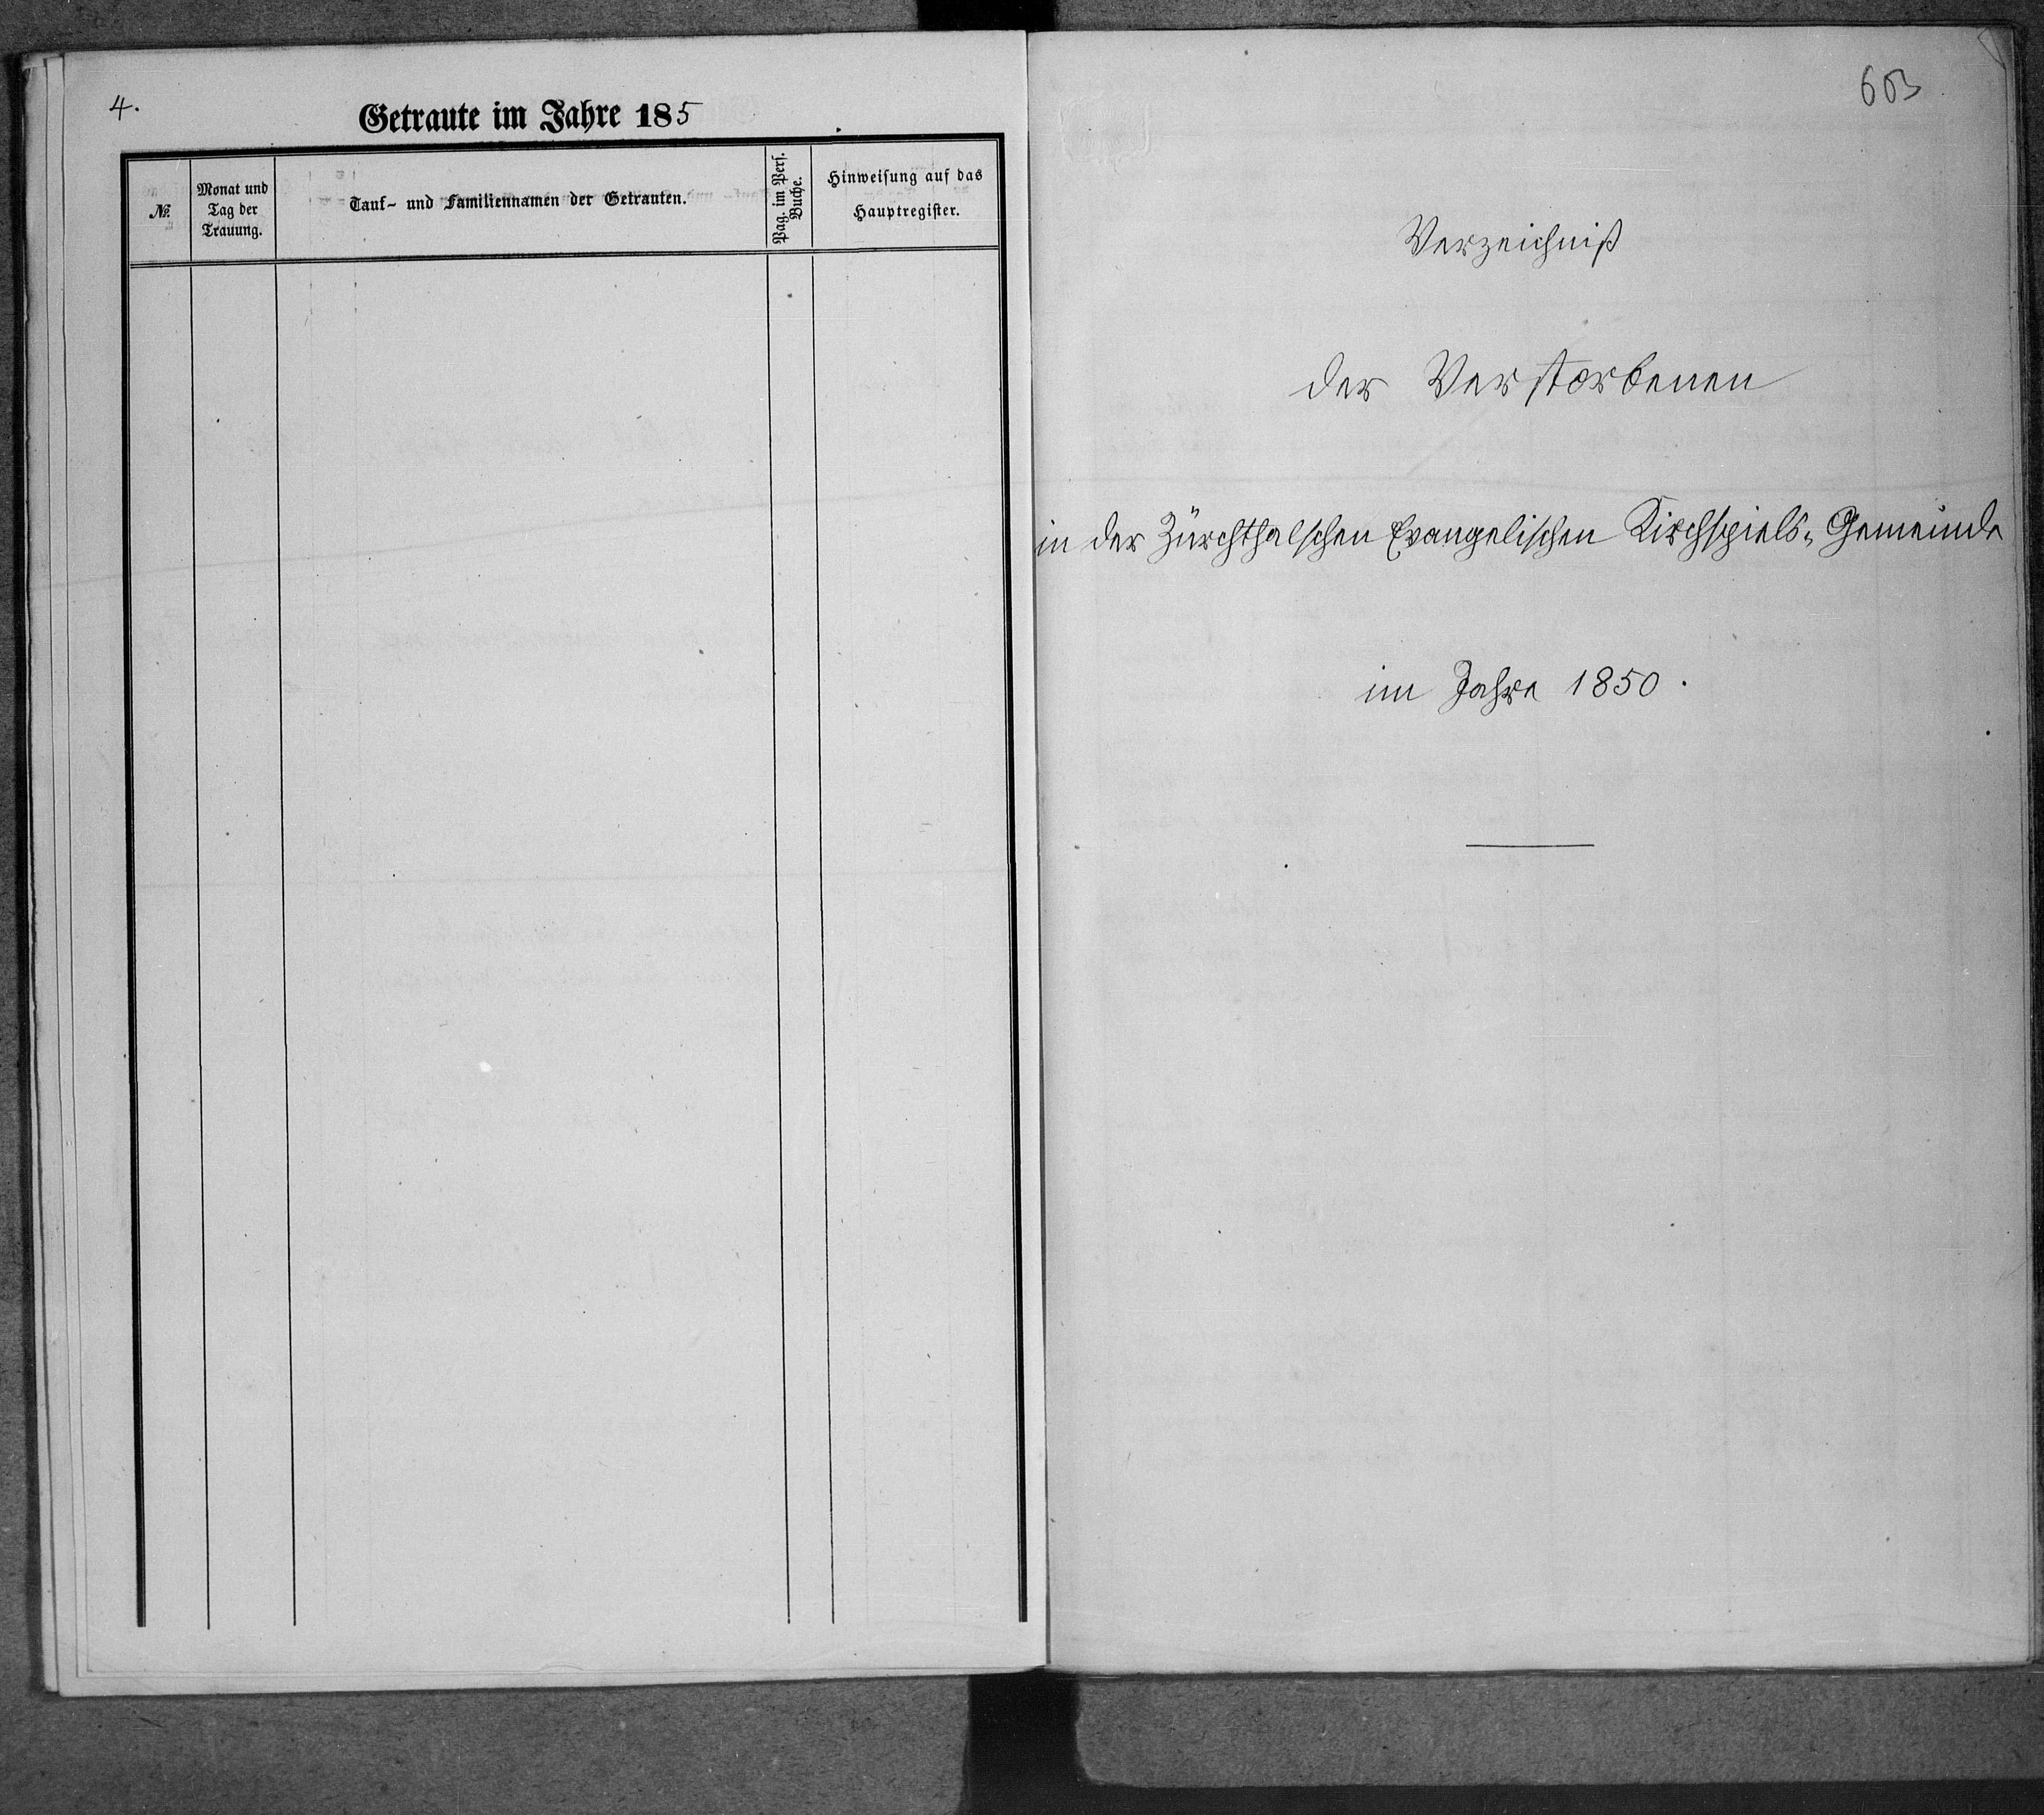 4.
Getraute im Jahre 185
№
Monat und
Tag der
Trauung.
Tauf- und Familiennamen der Getrauten.
Pag. im Pers.
Buche.
Hinweisung auf das
Hauptregister.
603
Verzeichniß
der Verstorbenen
in der Zürchthalschen Evangelischen Kirchspiels-Gemeinde
im Jahre 1850.